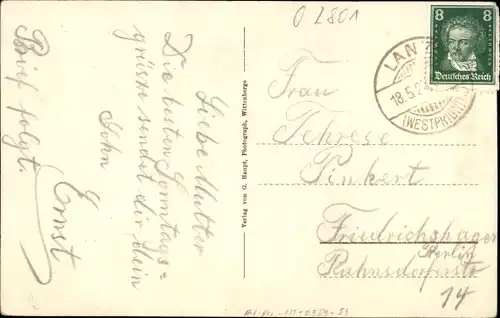 O 2801
8 8
Deutsches Reich
LANZ
18.5.2
(WESTPRIGN)
Liebe Mutter
Die besten Sonntags=
grüsse sendet dir dein
Sohn
Ernst
Brief folgt.
Verlag von G. Haupt, Photograph, Wittenberge
Frau
Therese
Pinkert
Friedrichshagen
Berlin
Rahnsdorferstr
14